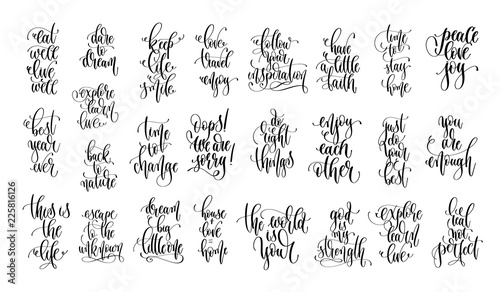 eat
well
live
well
dare
to
dream
keep
life
smile
love
travel
enjoy
follow
your
inspiration
have
little
faith
time
to
stay
home
peace
love
joy
explore
learn
live
best
year
ever
back
to
nature
time
to
change
Oops!
we are
sorry!
do
right
things
enjoy
each
other
just
do
your
best
you
are
enough
this is
the
life
escape
to the
unknown
dream
big
little one
house
+
love
=
home
the world
is
your
god
is my
strength
explore
learn
live
real
not
perfect